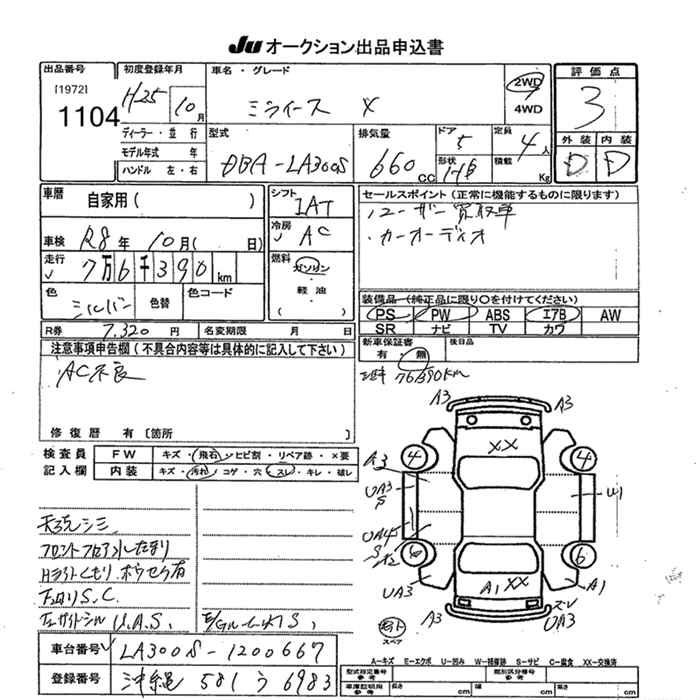 Ju オークション出品申込書
出品番号
[1972]
1104
初度登録年月
H25年10月
車名・グレード
ミライース X
2WD
4WD
評価点
3
外装 内装
D D
ディーラー・並行
モデル年式 年
ハンドル 左・右
型式
DBA-LA300S
排気量
660 CC
ドア
5
形状
定員
4人
積載 Kg
車歴
自家用( )
シフト
IAT
セールスポイント(正常に機能するものに限ります)
・ユーザー買取車
・カーオーディオ
車検 R8年10月( 日)
冷房
AC
走行
7万6千390km
燃料
ガソリン
・
軽油
( )
色
シルバー
色替
色コード
装備品(純正品に限り○を付けてください)
PS PW ABS エアB AW
SR ナビ TV カワ
R券 7,320円
名変期限 月 日
新車保証書
有・無
後日品
注意事項申告欄(不具合内容等は具体的に記入して下さい)
76390km
AC不良
修復歴 有[箇所 ]
検査員
記入欄
FW キズ・飛石・ヒビ割・リペア跡・×要
内装 キズ・汚れ・コゲ・穴・スレ・キレ・破レ
A3 A3
XX
4 4
A3
UA3
S
U1
UA4S
S
A2
6 6
UA3
A1 XX
A1
A3
UA3
スペア
天張シミ
フロントフロア水たまり
Hライトくもり、ボウセイ有
下廻りS.C.
U.A.S.
車台番号 LA300S-1200667
登録番号 沖縄 581 う 6983
A−キズ E−エクボ U−凹み W−補修跡 S−サビ C−腐食 XX−交換済
型式指定番号
類別区分番号
車庫証明用
参考
長さ cm
幅 cm
高さ cm